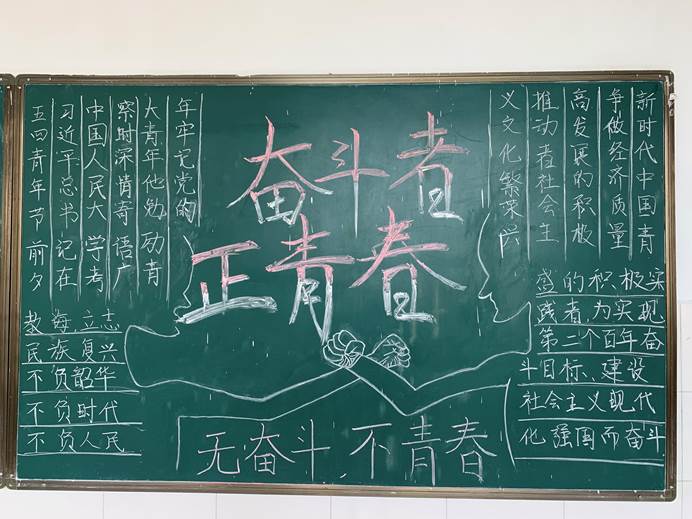 奋斗者
正青春
五四青年节前夕
习近平总书记在
中国人民大学考
察时深情寄语广
大青年他勉励青
年牢记党的
教诲立志
民族复兴
不负韶华
不负时代
不负人民
新时代中国青
争做经济质量
高发展的积极
推动者社会主
义文化繁荣兴
盛的积极实
践者,为实现
第二个百年奋
斗目标、建设
社会主义现代
化强国而奋斗
无奋斗,不青春